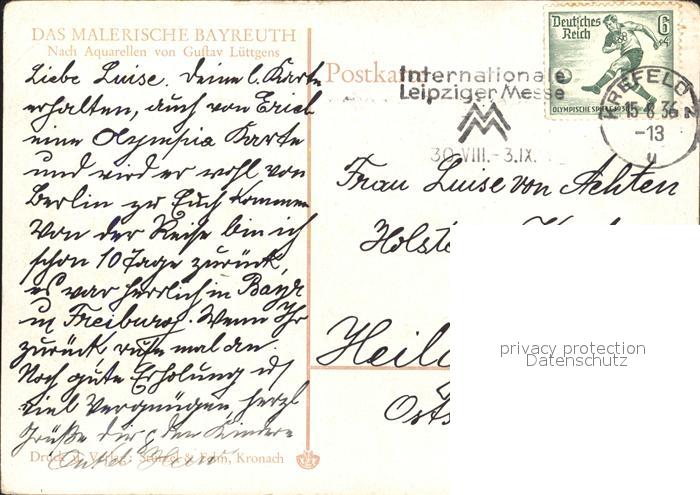 DAS MALERISCHE BAYREUTH
Nach Aquarellen von Gustav Lüttgens
Liebe Luise. Deine l. Karte
erhalten, auch von Erich
eine Olympia Karte
und wird er wohl von
Berlin zu Euch kommen
Von der Reise bin ich
schon 10 Tage zurück,
es war herrlich in Bayr
u Freiburg. Wenn Ihr
zurück rufe mal an.
Noch gute Erholung u
viel Vergnügen, herzl
Grüße dir & den Kindern
Onkel
Druck u. Verlag: Stürzel & Fehn, Kronach
Postka
Internationale
Leipziger Messe
MM
30.VIII.-3.IX.
Deutsches
Reich
6
+4
OLYMPISCHE SPIELE 1936
KREFELD 2
15.8.36
-13
u
Frau Luise von Achten
Holste
Heil
Osts
privacy protection
Datenschutz